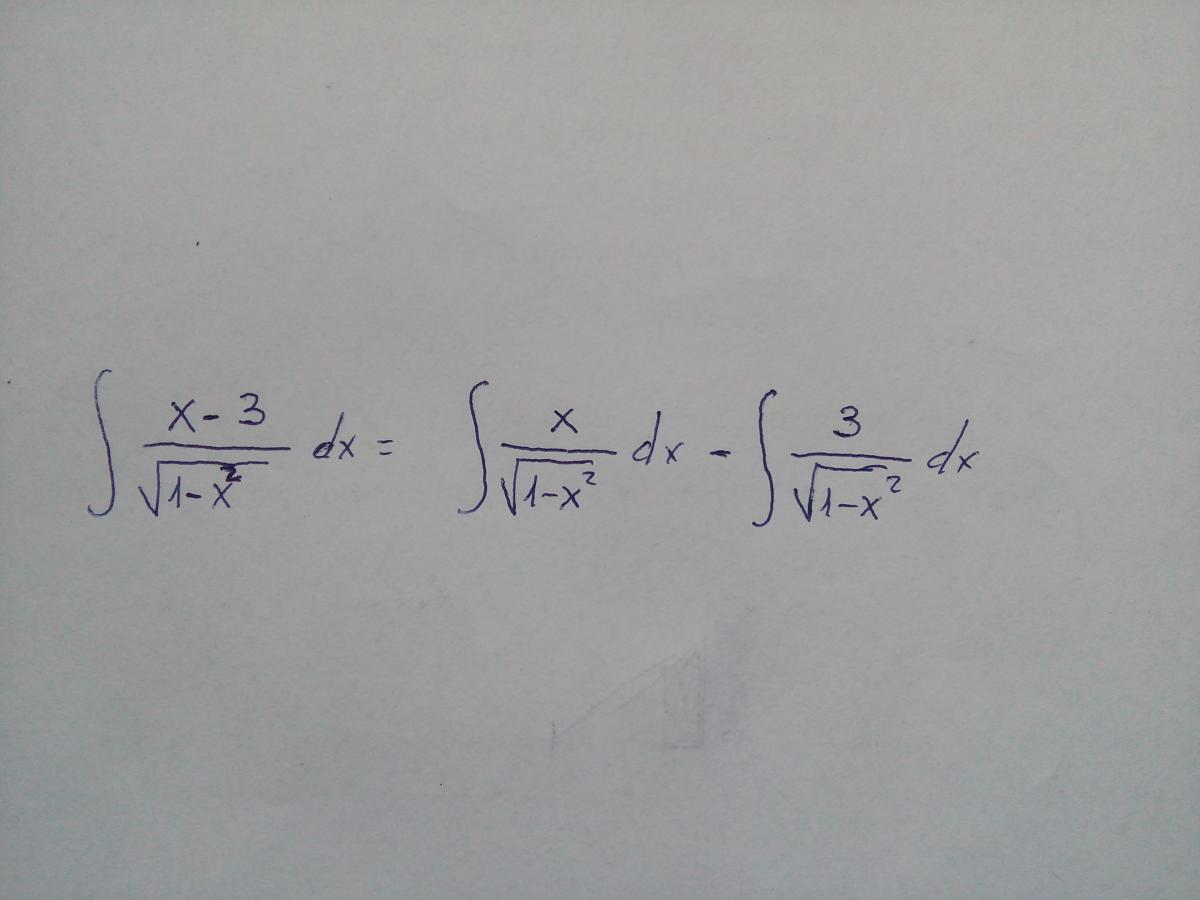 ∫ (x - 3)/√(1-x²) dx = ∫ x/√(1-x²) dx - ∫ 3/√(1-x²) dx